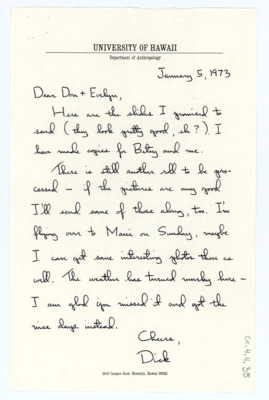 UNIVERSITY OF HAWAII
Department of Anthropology
January 5, 1973
Dear Don + Evelyn,
Here are the slides I promised to
send (they look pretty good, eh?) I
have made copies for Betsy and me.
There is still another roll to be pro-
cessed — if the pictures are any good
I'll send some of those along, too. I'm
flying over to Maui on Sunday, maybe
I can get some interesting photos there as
well. The weather has turned murky here —
I am glad you missed it and got the
nice days instead.
Cheers,
Dick
Honolulu, Hawaii 96822